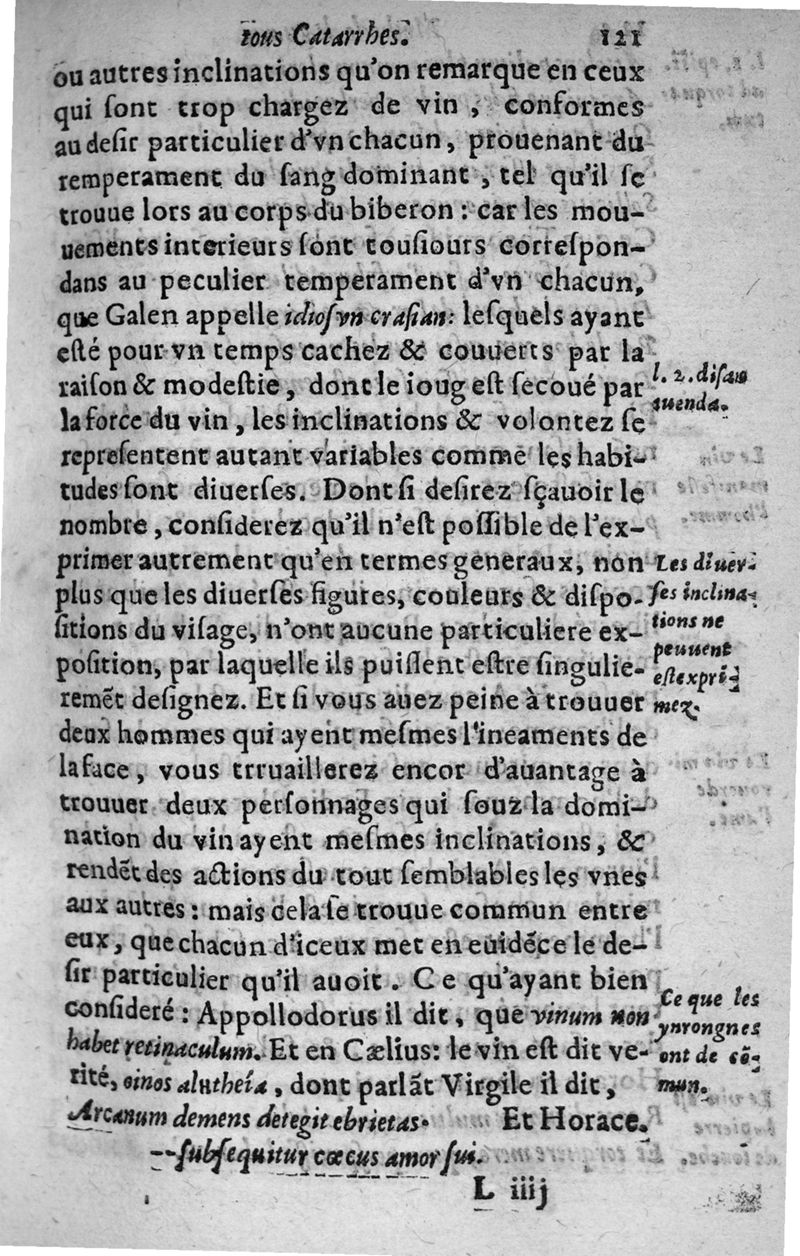 tous Catarrhes. 121
ou autres inclinations qu'on remarque en ceux
qui ſont trop chargez de vin , conformes
au deſir particulier d'vn chacun, prouenant du
remperament du ſang dominant , tel qu'il ſe
trouue lors au corps du biberon : car les mou-
uements interieurs ſont touſiours correſpon-
dans au peculier temperament d'vn chacun,
que Galen appelle idioſyn craſian: leſquels ayant
eſté pour vn temps cachez & couuerts par la
raiſon & modeſtie, dont le ioug eſt ſecoué par
la force du vin, les inclinations & volontez ſe
repreſentent autant variables comme les habi-
tudes ſont diuerſes. Dont ſi deſirez ſçauoir le
nombre, conſiderez qu'il n'eſt poſſible de l'ex-
primer autrement qu'en termes generaux, non
plus que les diuerſes figures, couleurs & diſpo-
ſitions du viſage, n'ont aucune particuliere ex-
poſition, par laquelle ils puiſſent eſtre ſingulie-
remēt deſignez. Et ſi vous auez peine à trouuer
deux hommes qui ayent meſmes l'ineaments de
la face, vous trruaillerez encor d'auantage à
trouuer deux perſonnages qui ſouz la domi-
nation du vin ayent meſmes inclinations, &
rendēt des actions du tout ſemblables les vnes
aux autres : mais cela ſe trouue commun entre
eux, que chacun d'iceux met en euidēce le de-
ſir particulier qu'il auoit. Ce qu'ayant bien
conſideré : Appollodorus il dit, que vinum non
habet retinaculum. Et en Cælius: le vin eſt dit ve-
rité, oinos alutheia, dont parlāt Virgile il dit,
Arcanum demens detegit ebrietas. Et Horace.
--ſubſequitur cœcus amor ſui.
L iiij
l. 2. diſan
tuenda.
Les diuer-
ſes inclina-
tions ne
peuuent
eſt expri-
mez.
Ce que les
ynrongnes
ont de cō-
mun.